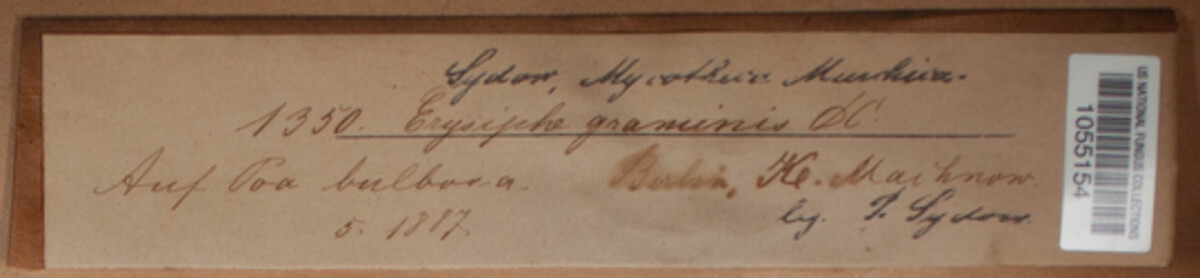 Sydow, Mycotheca Marchica.
1350. Erysiphe graminis DC.
Auf Poa bulbosa. Berlin, Kl. Machnow.
5. 1887. leg. P. Sydow.
US NATIONAL FUNGUS COLLECTIONS
1055154